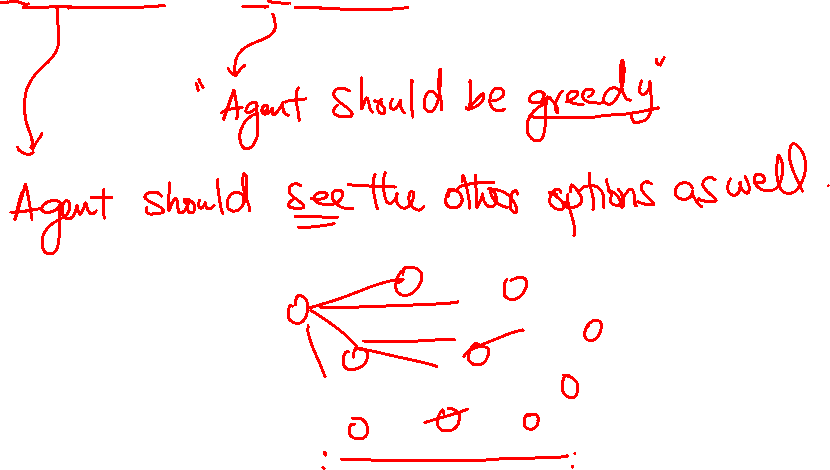 "Agent should be greedy"
Agent should see the other options as well.